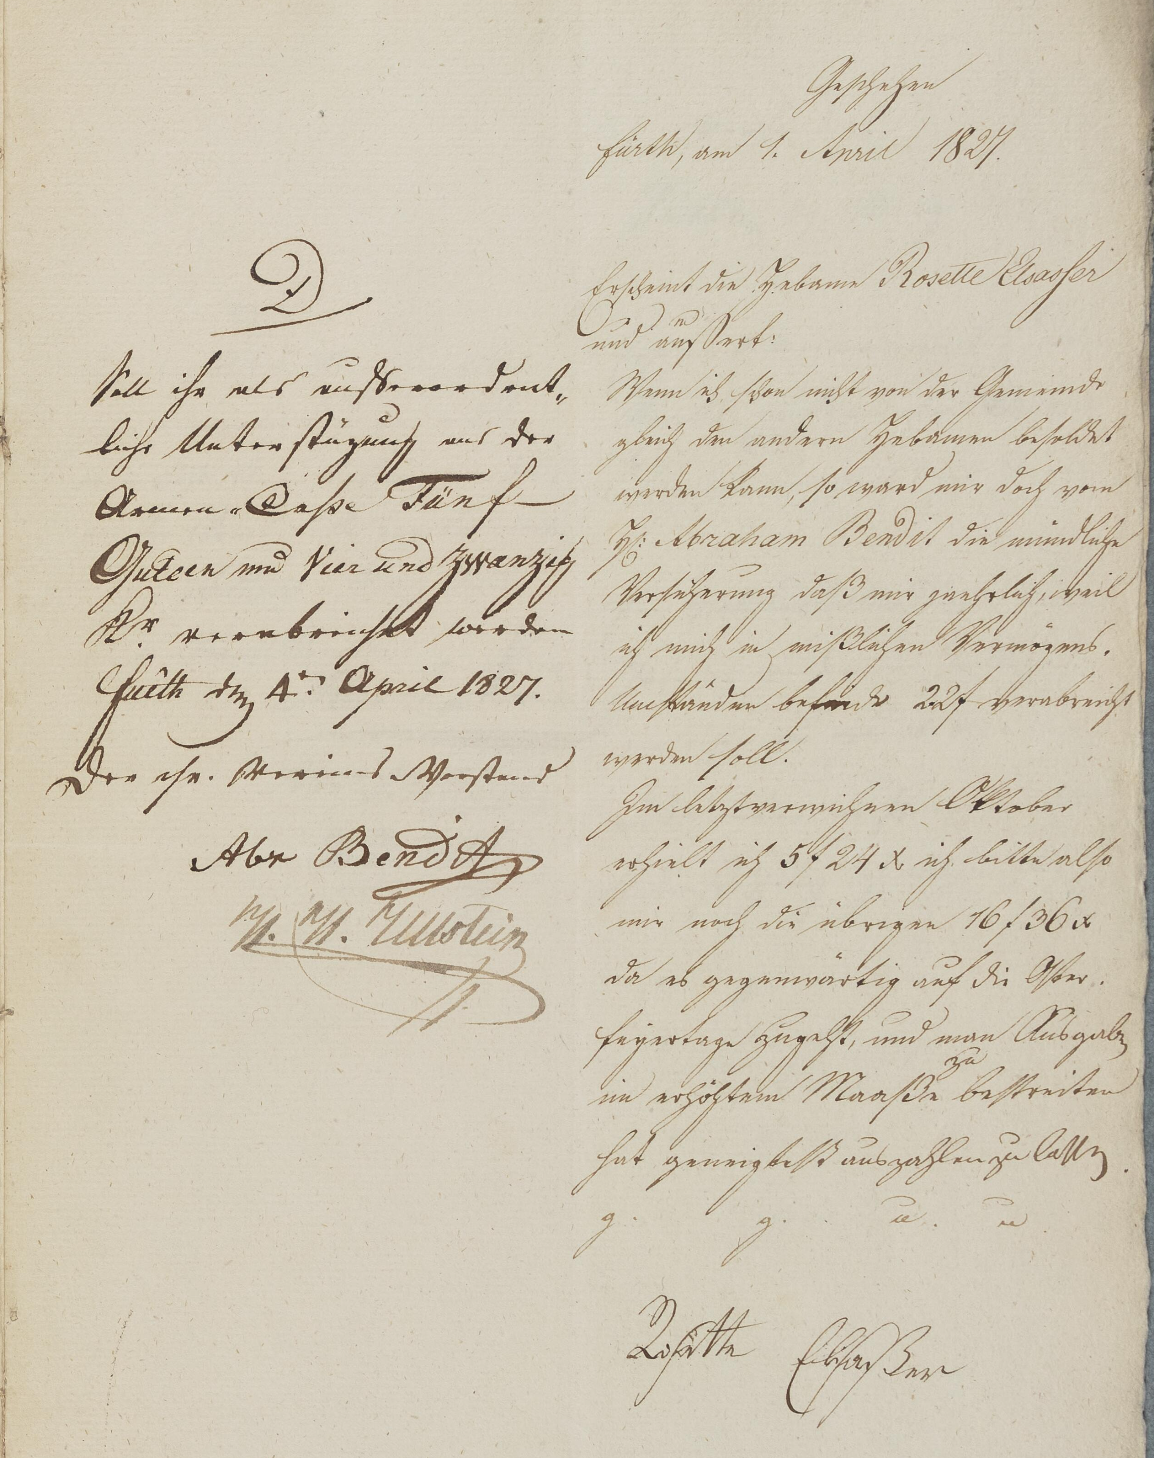 Geschehen
Fürth, am 1. April 1827.
Erscheint die Hebame Rosette Elsasser
und aüssert:
Wenn ich schon nicht von der Gemeinde
gleich den andern Hebamen besoldet
werden kann, so ward mir doch vom
H: Abraham Bendit die mündliche
Versicherung daß mir jaehrlich, weil
ich mich in mißlichen Vermögens-
Umständen befinde 22f verabreicht
werden soll.
Im letztverwichnen Oktober
erhielt ich 5f 24 x ich bitte also
mir noch die übrigen 16f 36 x
da es gegenwärtig auf die Oster-
feyertage zugeht, und man Ausgaben
in erhöhtem Maaße zu bestreiten
hat geneigtest auszahlen zu lassen.
g. g. u. u
Rosette Elsaßer
D
Soll ihr als ausserordent-
liche Unterstüzung aus der
Armen-Casse Fünf
Gulden und Vier und Zwanzig
Kr. verabreicht werden
Fürth den 4ten April 1827.
Der isr. Vereins Vorstand
Abr Bendit
H. H. Ullstein